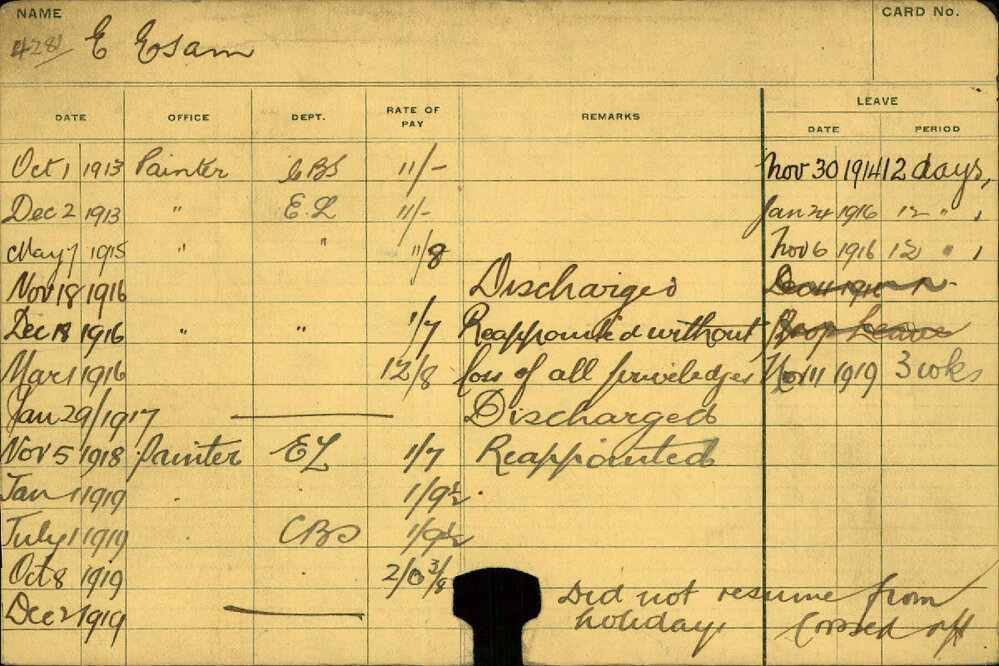 NAME CARD No.
4281 E Esam
DATE OFFICE DEPT. RATE OF PAY REMARKS LEAVE
DATE PERIOD
Oct 1 1913 Painter CBS 11/- Nov 30 1914 12 days,
Dec 2 1913 " E.L 11/- Jan 24 1916 12 " ,
May 7 1915 " " 11/8 Nov 6 1916 12 " ,
Nov 18 1916 Discharged
Dec 18 1916 " " 1/7 Reappointed without Leave
Mar 1 1916 12/8 loss of all priviledges Nov 11 1919 3 wks
Jan 29/1917 Discharged
Nov 5 1918 Painter EL 1/7 Reappointed
Jan 1 1919 1/9½
July 1 1919 CBS 1/9½
Oct 8 1919 2/0 3/8
Dec 2 1919 Did not resume from
holiday. Crossed off